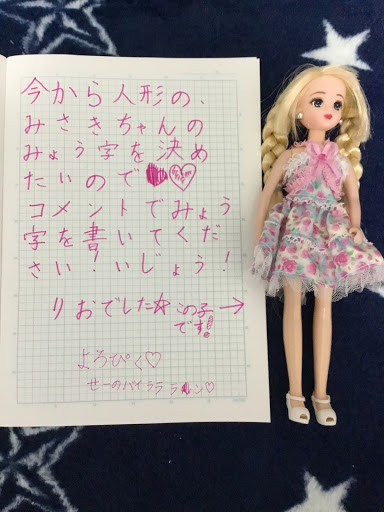 今から人形の、
みさきちゃんの
みょう字を決め
たいので
コメントでみょう
字を書いてくだ
さい!いじょう!
りおでした☆この子→
です!!
よろぴく♡
せーのバイララライン♡